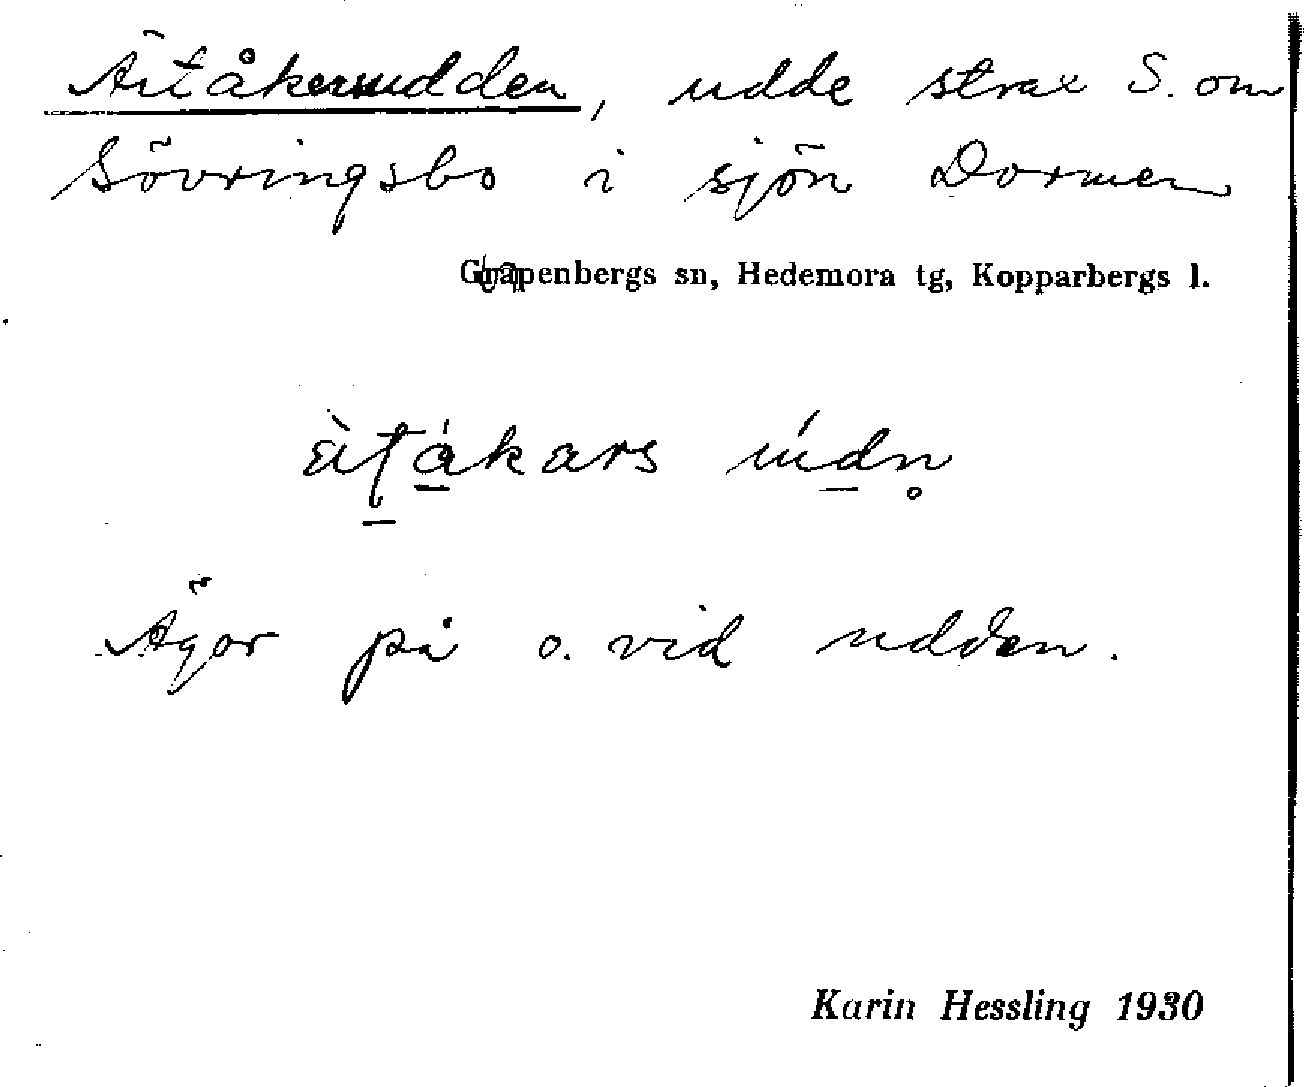 Ärtåkersudden, udde strax S. om
Sövringsbo i sjön Dormen
Garpenbergs sn, Hedemora tg, Kopparbergs l.
Ägor på o. vid udden.
Karin Hessling 1930